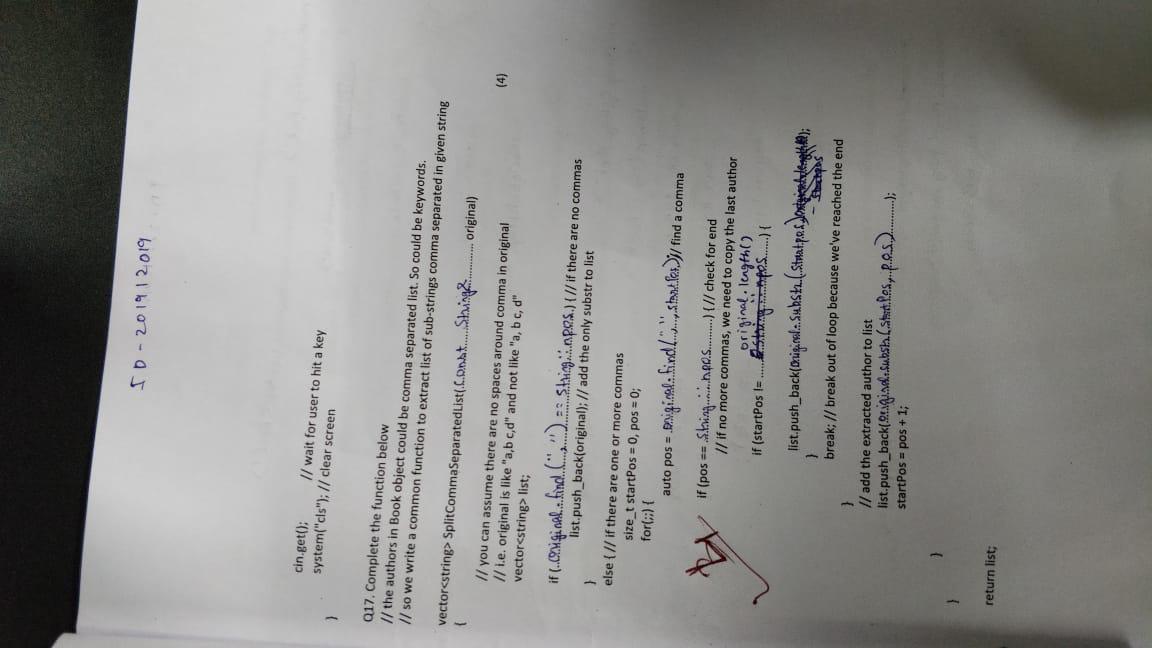 ID - 201912019
cin.get(); // wait for user to hit a key
system("cls"); // clear screen
}
Q17. Complete the function below
// the authors in Book object could be comma separated list. So could be keywords.
// so we write a common function to extract list of sub-strings comma separated in given string
vector<string> SplitCommaSeparatedList(.Const.....String&............ original)
{
(4)
// you can assume there are no spaces around comma in original
// i.e. original is like "a,b c,d" and not like "a, b c, d"
vector<string> list;
if (..original.find(",") == String::npos.) { // if there are no commas
list.push_back(original); // add the only substr to list
}
else { // if there are one or more commas
size_t startPos = 0, pos = 0;
for(;;) {
auto pos = .original.find(",", startPos); // find a comma
if (pos == .String::npos..........) { // check for end
// if no more commas, we need to copy the last author
original.length()
if (startPos != ......string::npos......) {
list.push_back(original.substr(startpos) original.length()
- startpos);
}
break; // break out of loop because we've reached the end
}
// add the extracted author to list
list.push_back(original.substr(startPos, pos)..........);
startPos = pos + 1;
}
}
return list;